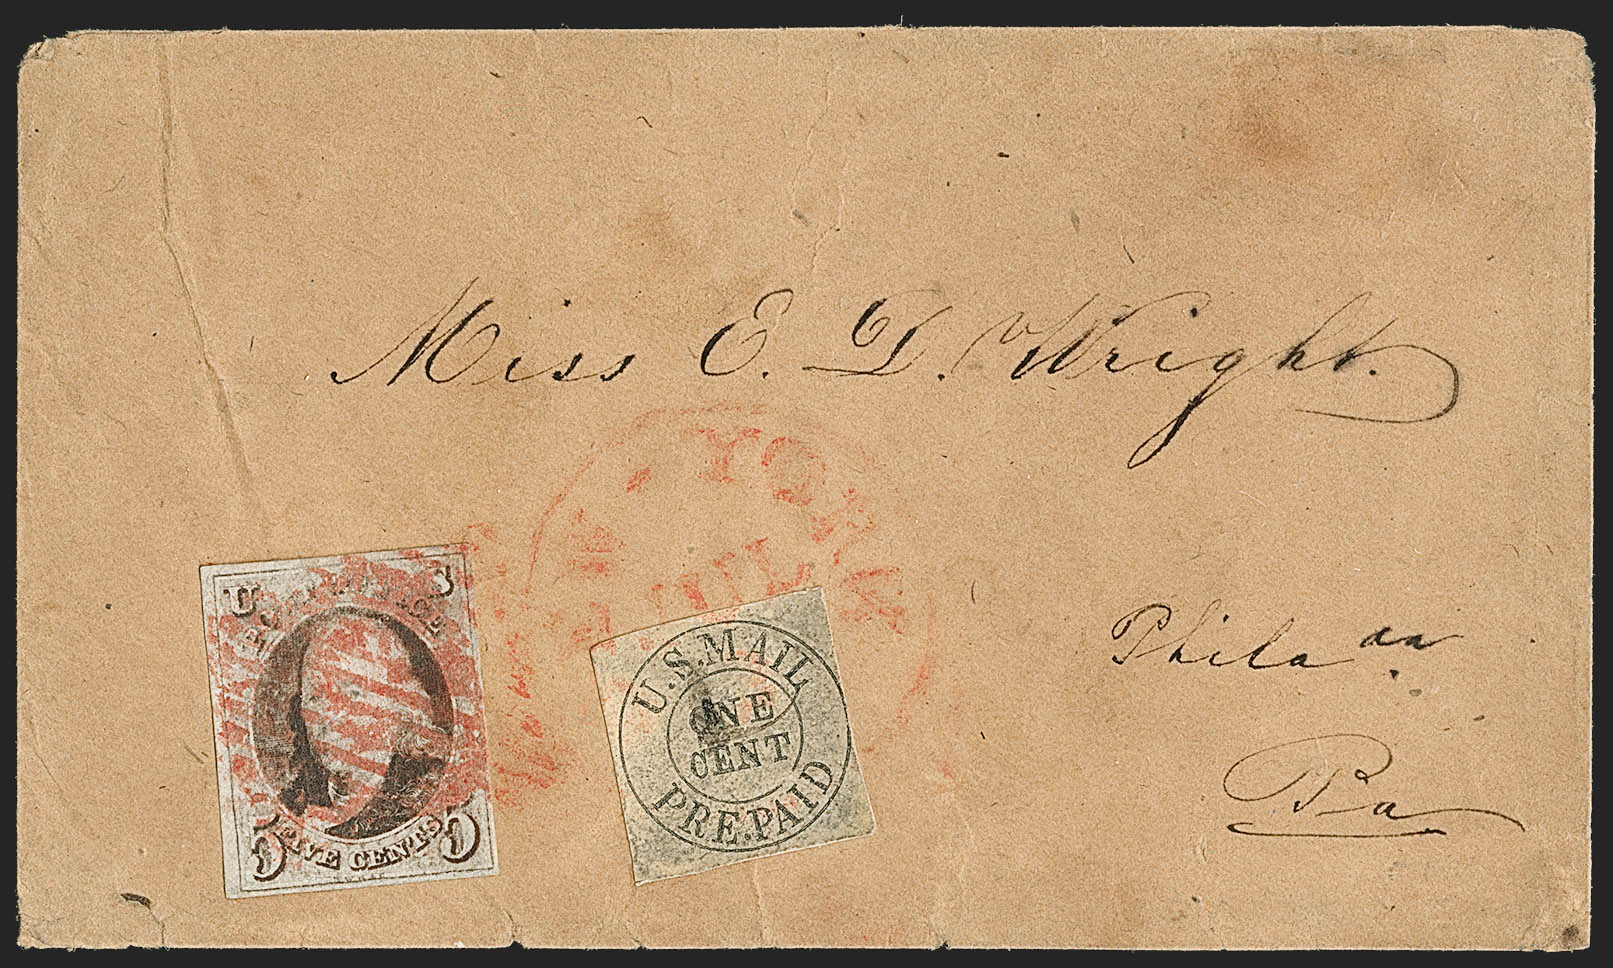 Miss E. D. Wright.
YORK
JUL
U S
POST OFFICE
FIVE CENTS
U.S. MAIL
ONE
CENT
PRE.PAID
Phila
Pa